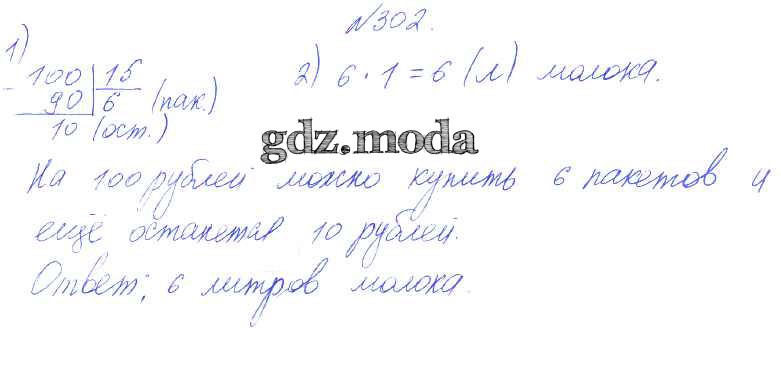 №302.
1) 100 | 15
- 90 | 6 (пак.)
10 (ост.)
2) 6 · 1 = 6 (л) молока.
gdz.moda
На 100 рублей можно купить 6 пакетов и
ещё останется 10 рублей.
Ответ: 6 литров молока.